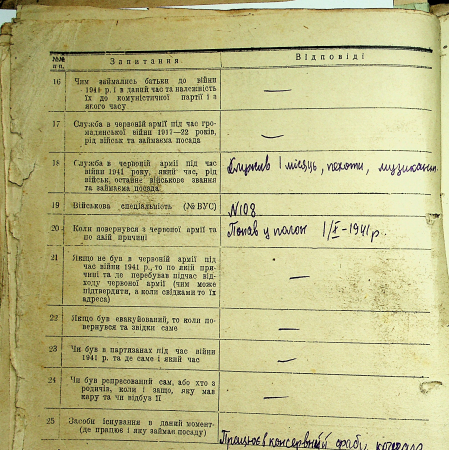 №№ п-п. Запитання Відповіді
16 Чим займались батьки до війни
1941 р. і в даний час та належність
їх до комуністичної партії і з
якого часу —
17 Служба в червоній армії під час гро-
мадянської війни 1917—22 років,
рід військ та займаєма посада —
18 Служба в червоній армії під час
війни 1941 року, який час, рід
військ, останнє військове звання
та займаєма посада Служив 1 місяць, пехоти, музикант
19 Військова спеціальність (№ ВУС) №108
20 Коли повернувся з червоної армії та
по якій причині Попав у полон 1/X-1941 р.
21 Якщо не був в червоній армії під
час війни 1941 р., то по якій при-
чині та де перебував підчас від-
ходу червоної армії (чим може
підтвердити, а коли свідками то їх
адреса) —
22 Якщо був евакуйований, то коли по-
вернувся та звідки саме —
23 Чи був в партизанах під час війни
1941 р. та де саме і який час —
24 Чи був репресований сам, або хто з
родичів, коли і защо, яку мав
кару та чи відбув її —
25 Засоби існування в даний момент-
(де працює і яку займає посаду) Працює в консервній